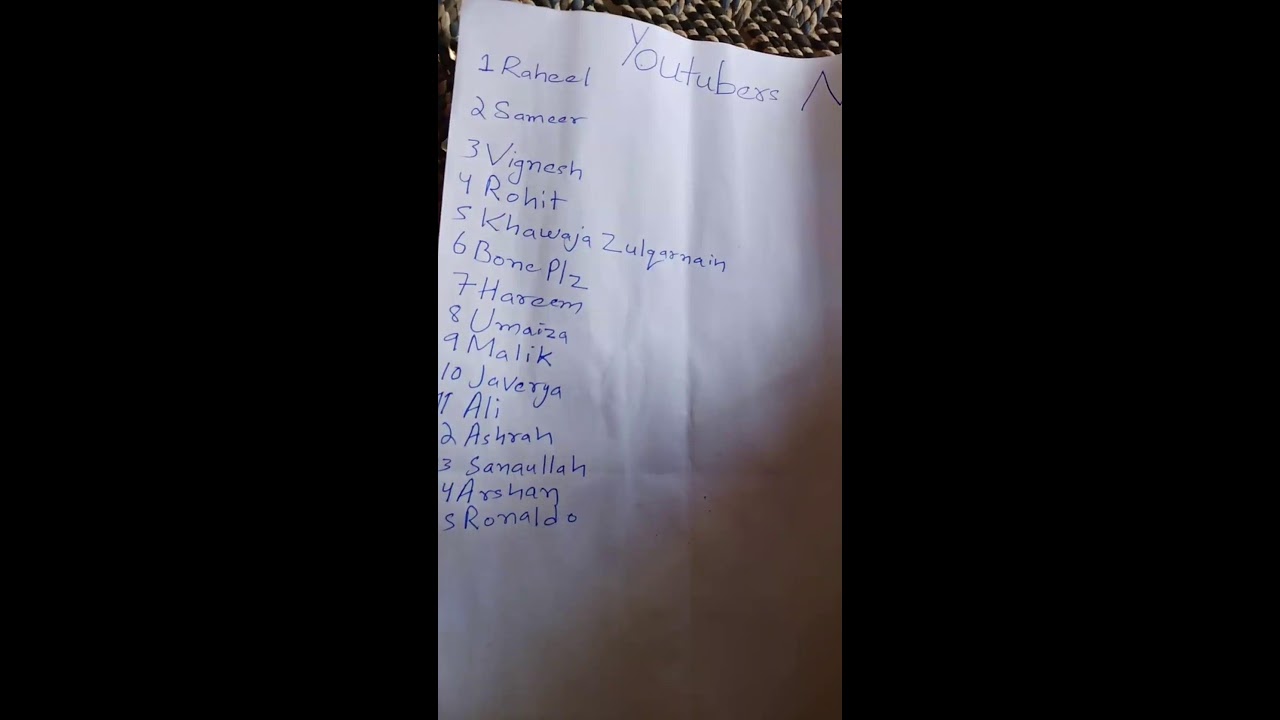 Youtubers N
1 Raheel
2 Sameer
3 Vignesh
4 Rohit
5 Khawaja Zulqarnain
6 Bone Plz
7 Hareem
8 Umaiza
9 Malik
10 Javerya
11 Ali
2 Ashrah
3 Sanaullah
4 Arshan
5 Ronaldo